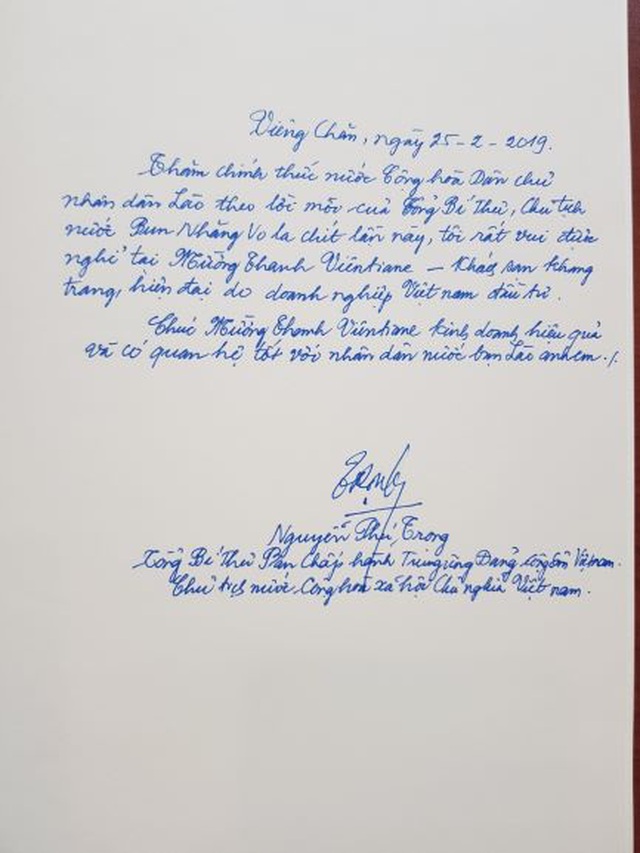 Viêng Chăn, ngày 25-2-2019.
Thăm chính thức nước Cộng hoà Dân chủ
nhân dân Lào theo lời mời của Tổng Bí thư, Chủ tịch
nước Bun Nhăng Vo la chít lần này, tôi rất vui được
nghỉ tại Mường Thanh Vientiane – Khách sạn khang
trang, hiện đại do doanh nghiệp Việt Nam đầu tư.
Chúc Mường Thanh Vientiane kinh doanh hiệu quả
và có quan hệ tốt với nhân dân nước bạn Lào anh em./.
Trọng
Nguyễn Phú Trọng
Tổng Bí thư Ban Chấp hành Trung ương Đảng Cộng sản Việt Nam.
Chủ tịch nước Cộng hoà xã hội Chủ nghĩa Việt Nam.